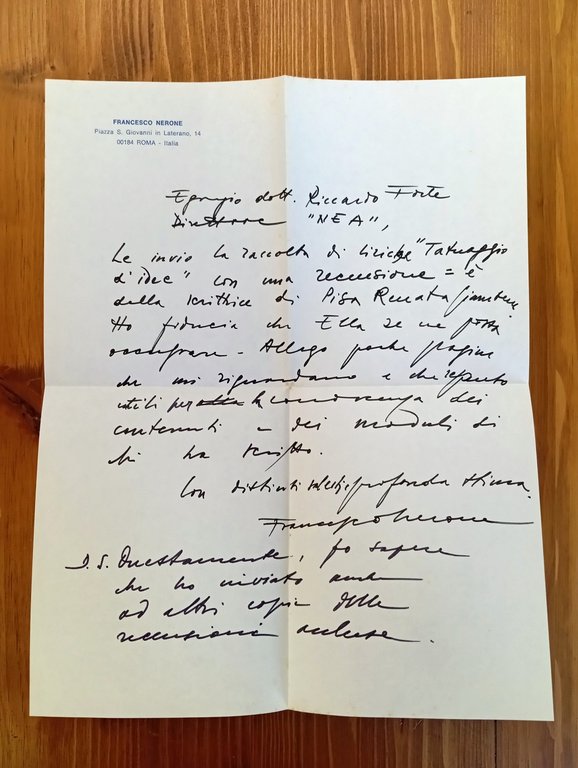 FRANCESCO NERONE
Piazza S. Giovanni in Laterano, 14
00184 ROMA - Italia
Egregio dott. Riccardo Forte
Direttore "NEA",
Le invio la raccolta di liriche "Tatuaggio
d'idee" con una recensione = è
della scrittrice di Pisa Renata
Ho fiducia che Ella se ne possa
occupare - Allego poche pagine
che mi riguardano e che reputo
utili per la conoscenza dei
contenuti e dei moduli di
chi ha scritto.
Con distinti saluti profonda stima.
Francesco Nerone
P.S. Onestamente, fo sapere
che ho inviato anche
ad altri copia delle
recensioni accluse.